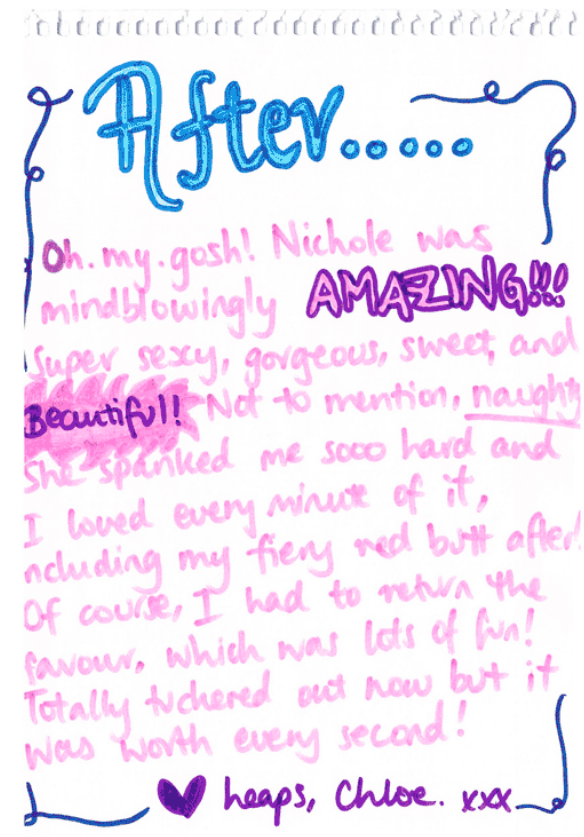 After.....
Oh.my.gosh! Nichole was
mindblowingly AMAZING!!!
Super sexy, gorgeous, sweet, and
Beautiful! Not to mention, naughty
She spanked me sooo hard and
I loved every minute of it,
ncluding my fiery red butt after!
Of course, I had to return the
favour, which was lots of fun!
Totally tuckered out now but it
was worth every second!
♥ heaps, Chloe. xxx